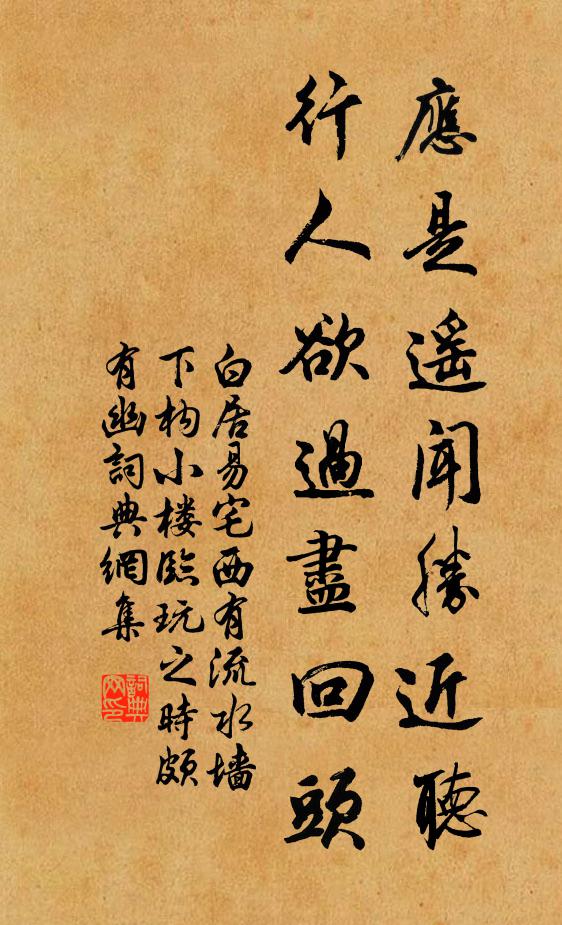 應是遥聞勝近聽
行人欲過盡回頭
白居易宅西有流水墙
下构小楼臨玩之時頗
有幽詞典網集
詞典網印